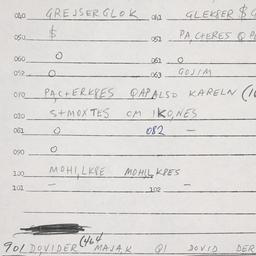 040 GREJSERGLOK 041 GLEKPER $
050 $ 051 PA,CTERES
060 O 061 O
062 O 063 GOJIM
070 PA,CTERKPES QAPALSO KARELN
080 S+MOXTES OM IKO,NES
081 O 082 -
090 O
100 MOHI,LKPE MOHIL,KPES
101 - 102 -
901 DOVIDER MAJA,K QI DOVID DER